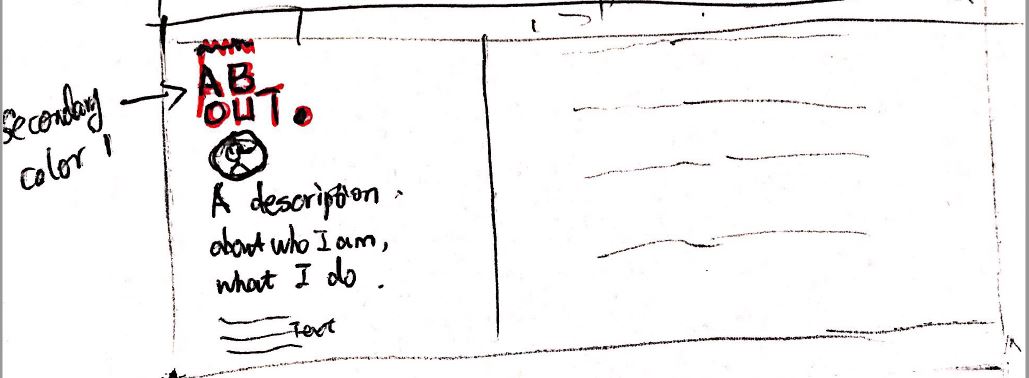 AB
OUT.
Secondary
color 1
A description.
about who I am,
what I do.
Text